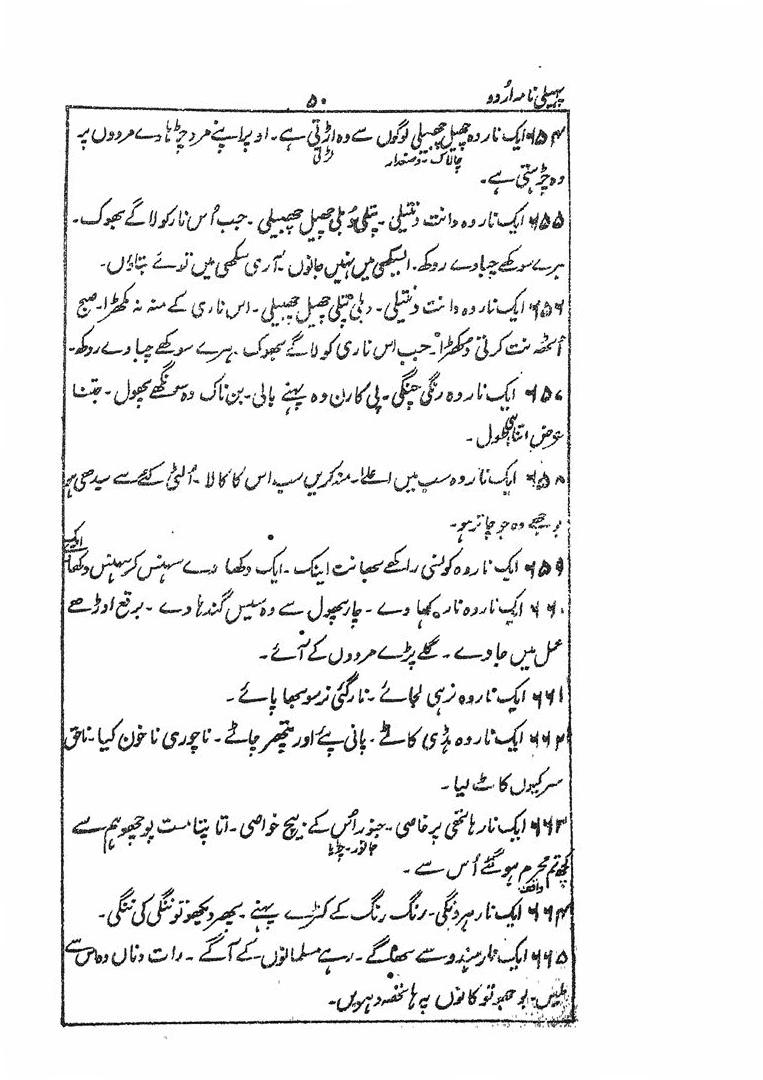 پہیلی نامہ اُردو
۵۰
۶۵۴ ایک نار وہ چھیل چھبیلی لوگوں سے وہ اڑتی ہے۔ اوپر اپنے مرد چڑھاوے مردوں پر
چالاک۔ وضعدار لڑتی
وہ چڑھتی ہے۔
۶۵۵ ایک نار وہ دانت دنتیلی۔ پتلی دُبلی چھیل چھبیلی۔ جب اُس نار کو لاگے بھوک۔
ہرے سوکھے چباوے روکھ۔ اے سکھی میں نہیں جانوں۔ آری سکھی میں توئے بتاؤں۔
۶۵۶ ایک نار وہ دانت دنتیلی۔ دبلی پتلی چھیل چھبیلی۔ اس ناری کے منہ نہ کھڑا۔ صبح
اُٹھ نت کرتی دکھڑا۔ جب اس ناری کو لاگے بھوک۔ ہرے سوکھے چباوے روکھ۔
۶۵۷ ایک نار وہ رنگی چنگی۔ پی کارن وہ پہنے بالی۔ بن ناک وہ سونگھے پھول۔ جتنا
عرض اتنا ہی طول۔
۶۵۸ ایک نار وہ سب میں اعلےٰ۔ منہ کریں سب اس کا کالا۔ اُلٹی کئے سے سیدھی ہو
بوجھے وہ جو چاتر ہو۔
۶۵۹ ایک نار وہ کونسی راکھے بھانت اینک۔ ایک دکھاوے سہنس کر سہنس دکھا
ایک
۶۶۰ ایک نار وہ نار کہاوے۔ چار پھول سے وہ سیس گندھاوے۔ برقع اوڑھے
عمل میں جاوے۔ گلے پڑے مردوں کے آئے۔
۶۶۱ ایک نار وہ نر ہی لجائے۔ نار گئی نر سو بھا پائے۔
۶۶۲ ایک نار وہ ہڈی کاٹے۔ پانی پئے اور پتھر چاٹے۔ نا چوری نا خون کیا۔ ناحق
سر کیوں کاٹ لیا۔
۶۶۳ ایک نار ہاتھی پر خاصی۔ جنور اُس کے بیچ خواصی۔ اتا پتا مت پوچھو ہم سے
جانور۔ چڑیا
کچھ تم محرم ہو گئے اُس سے۔
واقف
۶۶۴ ایک نار ہر دنگی۔ رنگ رنگ کے کپڑے پہنے۔ پھر دیکھو تو ننگی کی ننگی۔
۶۶۵ ایک نار ہندو سے بھاگے۔ رہے مسلمانوں کے آگے۔ رات دناں وہ اس سے
ملیں۔ بوجھو تو کانوں پہ ہاتھ دھریں۔